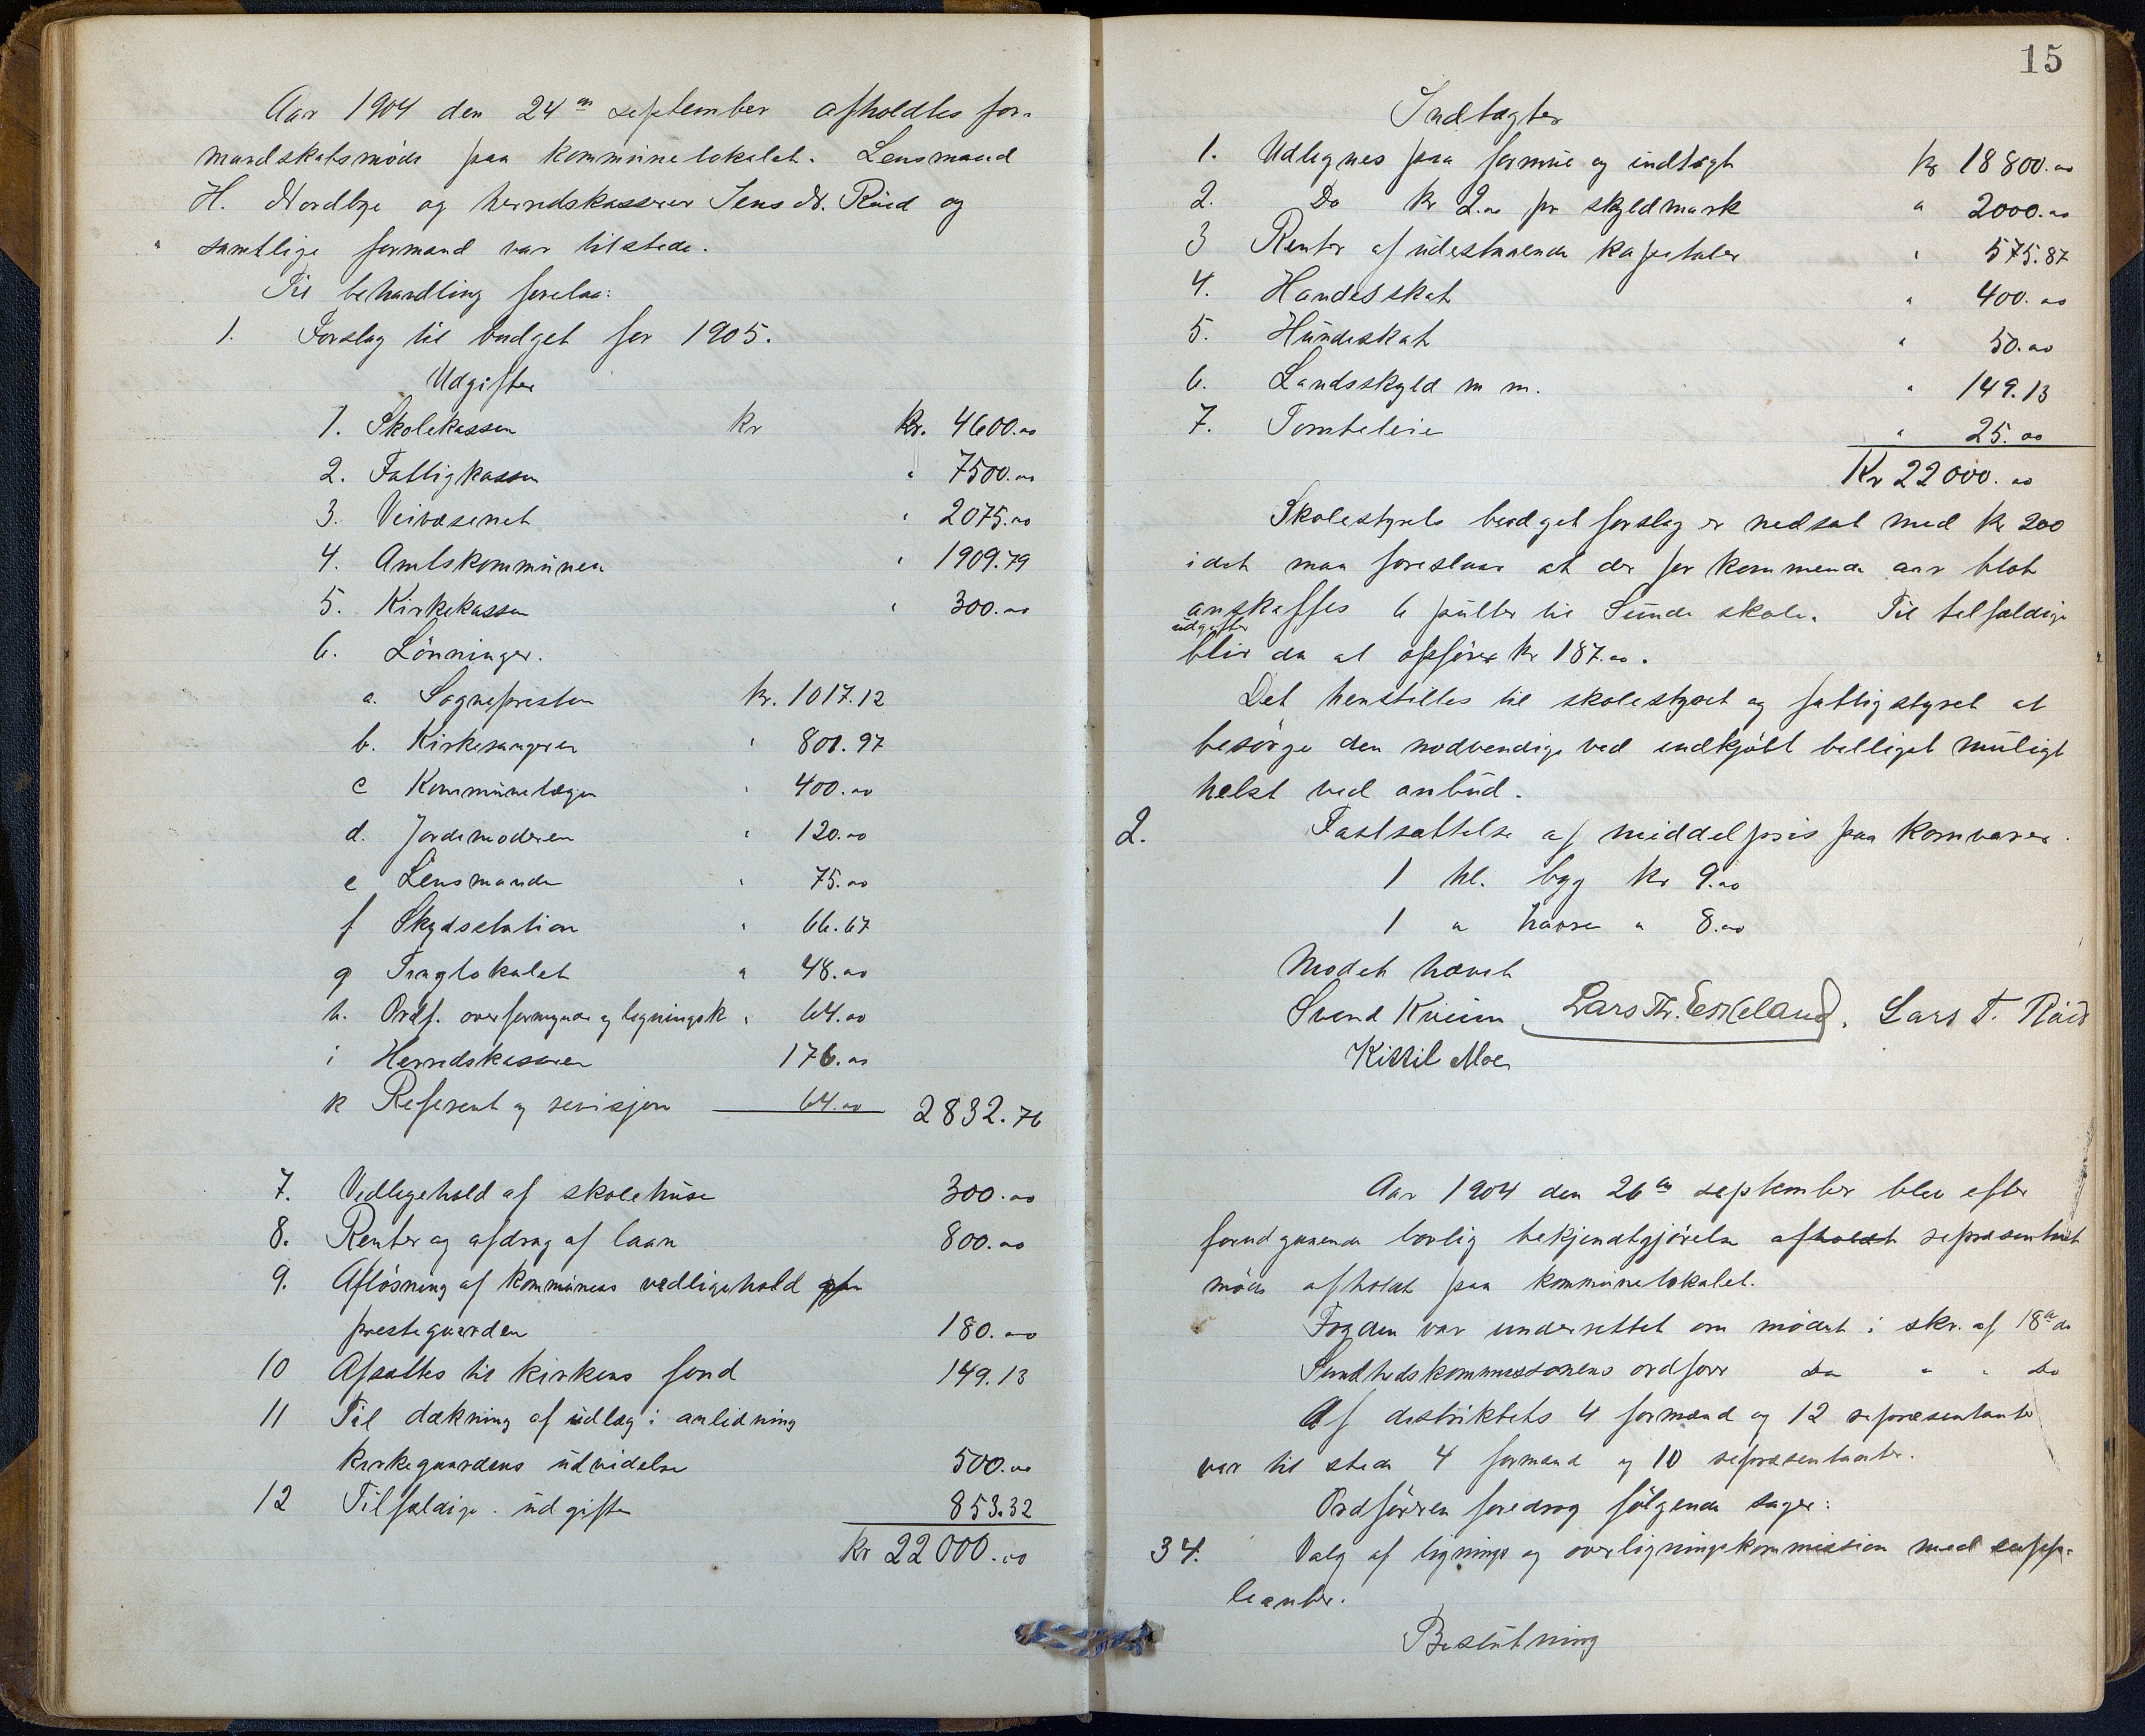 Aar 1904 den 24de september afholdtes for-
mandskabsmøde paa kommunelokalet. Lensmand
H. Nordbye og herredskasserer Jens N. Riis og
samtlige formænd var tilstede.
Til behandling forelaa:
1. Forslag til budget for 1905.
Udgifter
1. Skolekassen kr kr. 4600.00
2. Fattigkassen " 7500.00
3. Veivæsenet " 2075.00
4. Amtskommunen " 1909.79
5. Kirkekassen " 300.00
6. Lönninger.
a. Sognepresten kr. 1017.12
b. Kirkesangeren " 801.97
c Kommunelægen " 400.00
d. Jordemoderen " 120.00
e Lensmanden " 75.00
f Skydsstation " 66.67
g Tinglokalet " 48.00
h. Ordf. overformynder og ligningsk " 64.00
i Herredskasseren 176.00
k Referent og revisjon 64.00 2832.76
7. Vedligehold af skolehuse 300.00
8. Renter og afdrag af laan 800.00
9. Aflösning af kommunens vedligehold
prestegaarden 180.00
10 Afsættes til kirkens fond 149.13
11 Til dækning af udlæg i anledning
kirkegaardens udvidelse 500.00
12 Tilfældige udgifter 853.32
kr 22000.00
15
Indtægter
1. Udlignes paa formue og indtægt kr 18800.00
2. Do kr 2.00 pr skyldmark " 2000.00
3 Renter af udestaaende kapitaler " 575.87
4. Handelsskat " 400.00
5. Hundeskat " 50.00
6. Landsskyld m m. " 149.13
7. Tomteleie " 25.00
Kr 22000.00
Skolestyrets budgetforslag er nedsat med kr 200
idet man foreslaar at der for kommende aar blot
anskaffes 6 pulter til Sunde skole. Til tilfældige
udgifter
blir da at opføre kr 187.00.
Det henstilles til skolestyret og fattigstyret at
besörge den nødvendige ved indkjöbt billigst muligt
helst ved anbud.
2. Fastsættelse af middelpris paa kornvarer.
1 hl. byg kr 9.00
1 " havre " 8.00
Mødet hævet
Svend Kviim Lars Th. Eskeland. Lars T. Riis
Kittil Moe
Aar 1904 den 26de september blev efter
forudgaaende lovlig bekjendtgjörelse afholdt repræsentant
möde afholdt paa kommunelokalet.
Fogden var underrettet om mödet i skr. af 18de ds
Sundhedskommissionens ordfører Do " " do
Af distriktets 4 formænd og 12 repræsentanter
var til stede 4 formænd og 10 repræsentanter.
Ordföreren foredrog følgende sager:
34. Valg af lignings og overligningskommission med supp-
leanter.
Beslutning